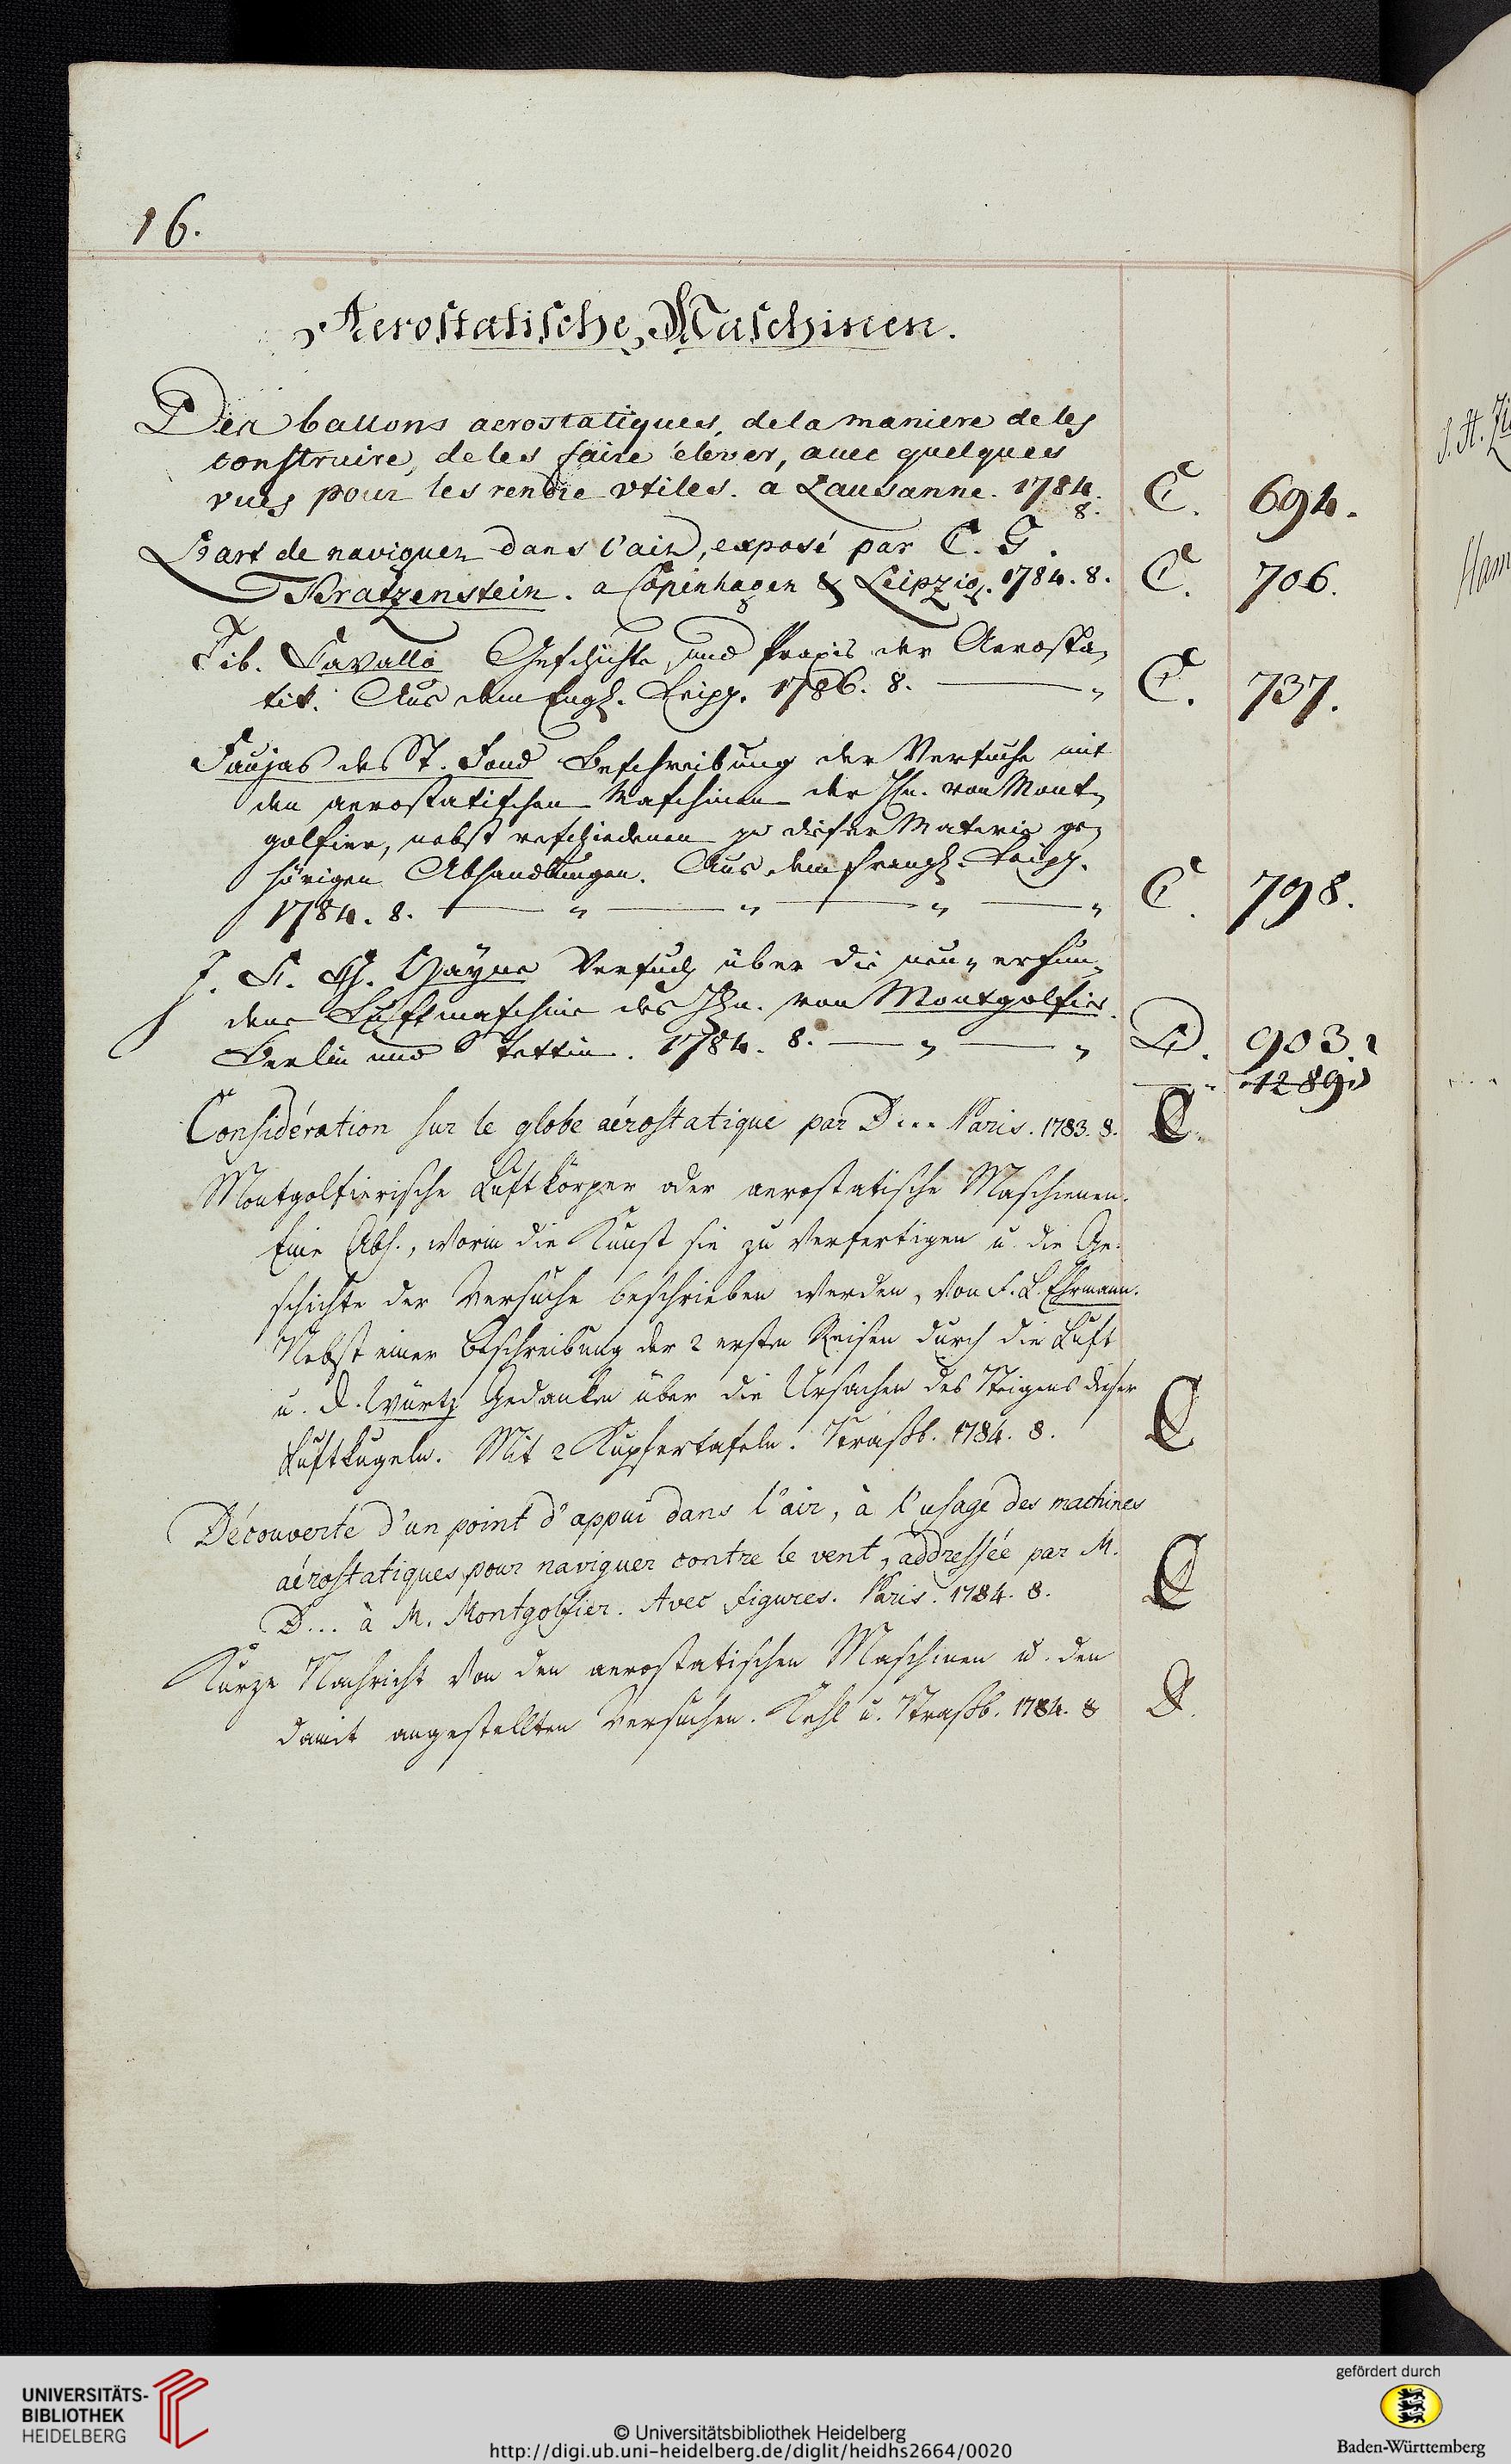 16.
Aerostatische Maschinen.
Des ballons aerostatiques, de la maniere de les
construire, de les faire élever, avec quelques
vues pour les rendre vtiles. a Lausanne. 1784. C. 694.
8.
L'art de naviguer dans l'air, exposé par C. G.
Kratzenstein. a Copenhagen & Leipzig. 1784. 8. C. 706.
Tib. Cavallo Geschichte und Praxis der Aerosta„
tik. Aus dem Engl. Leipz. 1786. 8. — „ C. 737.
Faujas des St. Fond Beschreibung der Versuche mit
den aerostatischen Maschinen der Hn. von Mont„
golfier, nebst verschiedenen zu dieser Materie ge„
hörigen Abhandlungen. Aus dem Franz. Leipz.
1784. 8. — „ — „ — „ — „ C. 798.
J. F. Ch. Hayne Versuch über die neu„ erfun„
dene Luftmaschine des Hn. von Montgolfier.
Berlin und Stettin. 1784. 8. — „ — „ D. 903.
1289.
Considération sur le globe aérostatique par D... Paris. 1783. 8.
Montgolfierische Luftkörper oder aerostatische Maschienen.
Eine Abh., worin die Kunst sie zu verfertigen u. die Ge-
schichte der Versuche beschrieben werden, von F. L. Ehrmann.
Nebst einer Beschreibung der 2 ersten Reisen durch die Luft
u. D. Würtz Gedanken über die Ursachen des Steigens dieser
Luftkugeln. Mit 2 Kupfertafeln. Straßb. 1784. 8.
Découverte d'un point d'appui dans l'air, à l'usage des machines
aérostatiques, pour naviguer contre le vent, addressée par M.
D... à M. Montgolfier. Avec figures. Paris. 1784. 8.
Kurze Nachricht von den aerostatischen Maschinen u. den
damit angestellten Versuchen. Kehl u. Straßb. 1784. 8 D.
J. H.
Ham
UNIVERSITÄTS-
BIBLIOTHEK
HEIDELBERG
© Universitätsbibliothek Heidelberg
http://digi.ub.uni-heidelberg.de/diglit/heidhs2664/0020
gefördert durch
Baden-Württemberg